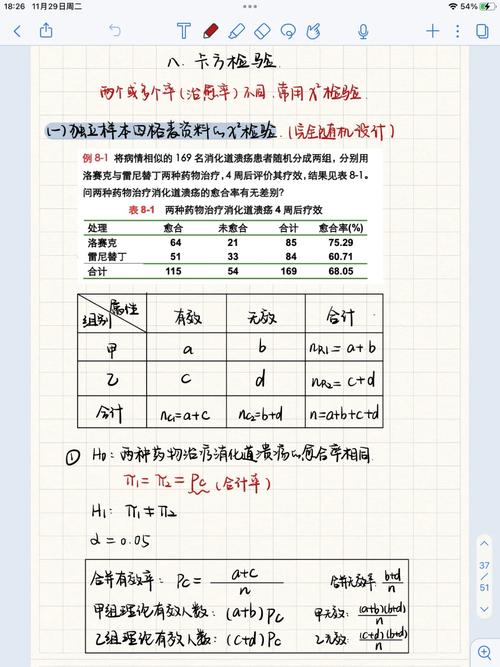 18:26 11月29日周二
54%
八. 卡方检验
两个或多个率(治愈率)不同,常用χ²检验.
(一)独立样本四格表资料的χ²检验.(完全随机设计)
例 8-1 将病情相似的 169 名消化道溃疡患者随机分成两组,分别用
洛赛克与雷尼替丁两种药物治疗,4 周后评价其疗效,结果见表 8-1。
问两种药物治疗消化道溃疡的愈合率有无差别?
表 8-1 两种药物治疗消化道溃疡 4 周后疗效
处理 愈合 未愈合 合计 愈合率(%)
洛赛克 64 21 85 75.29
雷尼替丁 51 33 84 60.71
合计 115 54 169 68.05
组别 属性 有效 无效 合计
甲 a b nR1=a+b
乙 c d nR2=c+d
合计 nc1=a+c nc2=b+d n=a+b+c+d
① H0:两种药物治疗消化道溃疡的愈合率相同.
π1=π2=Pc(合计率)
H1:π1≠π2
α=0.05
合并有效率:Pc=(a+c)/n 合并无效率:(b+d)/n
甲组理论有效人数:(a+b)Pc 甲无效:(a+b)(b+d)/n
乙组理论有效人数:(c+d)Pc 乙无效:(c+d)(b+d)/n
37
51